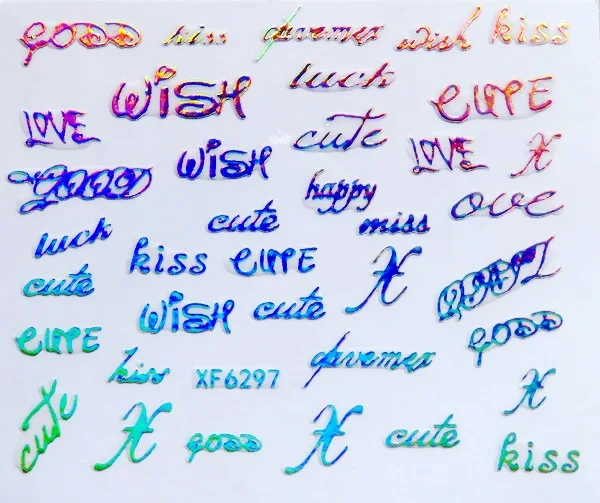 GOOD kiss davemex wish kiss
WISH luck CUTE
LOVE cute LOVE X
GOOD WISH happy ove
luck cute miss
kiss CUTE X
cute WISH cute
CUTE davemex GOOD
kiss XF6297 X
cute X GOOD X cute kiss